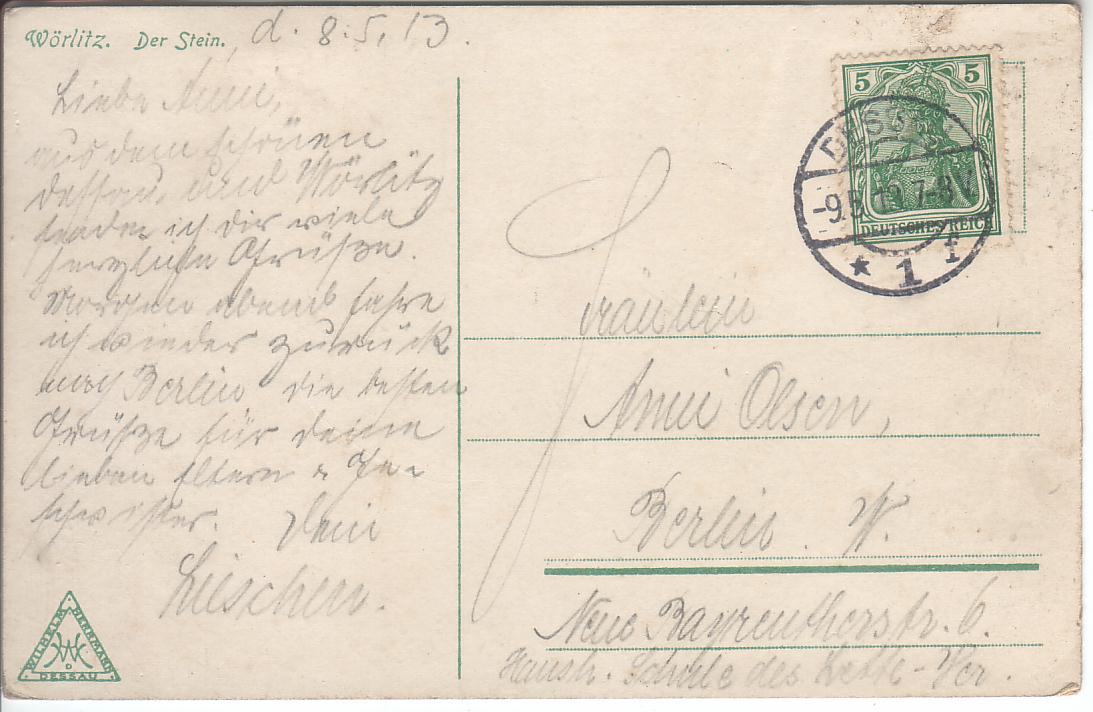 Wörlitz. Der Stein.
d. 8.5.13.
Liebe Anni,
aus dem schönen
Dessau und Wörlitz
sende ich dir viele
herzliche Grüße.
Morgen abend fahre
ich wieder zurück
nach Berlin die besten
Grüße für deine
lieben Eltern u Ge-
schwister. Dein
Lieschen.
5 5
DEUTSCHES REICH
DESS
-9.5.13.7-8V.
* 1 f
Fräulein
Anni Olsen,
Berlin. W.
Neue Bayreutherstr. 6.
Haush. Schule des Lette-Ver.
WILHELM HERRMANN
DESSAU